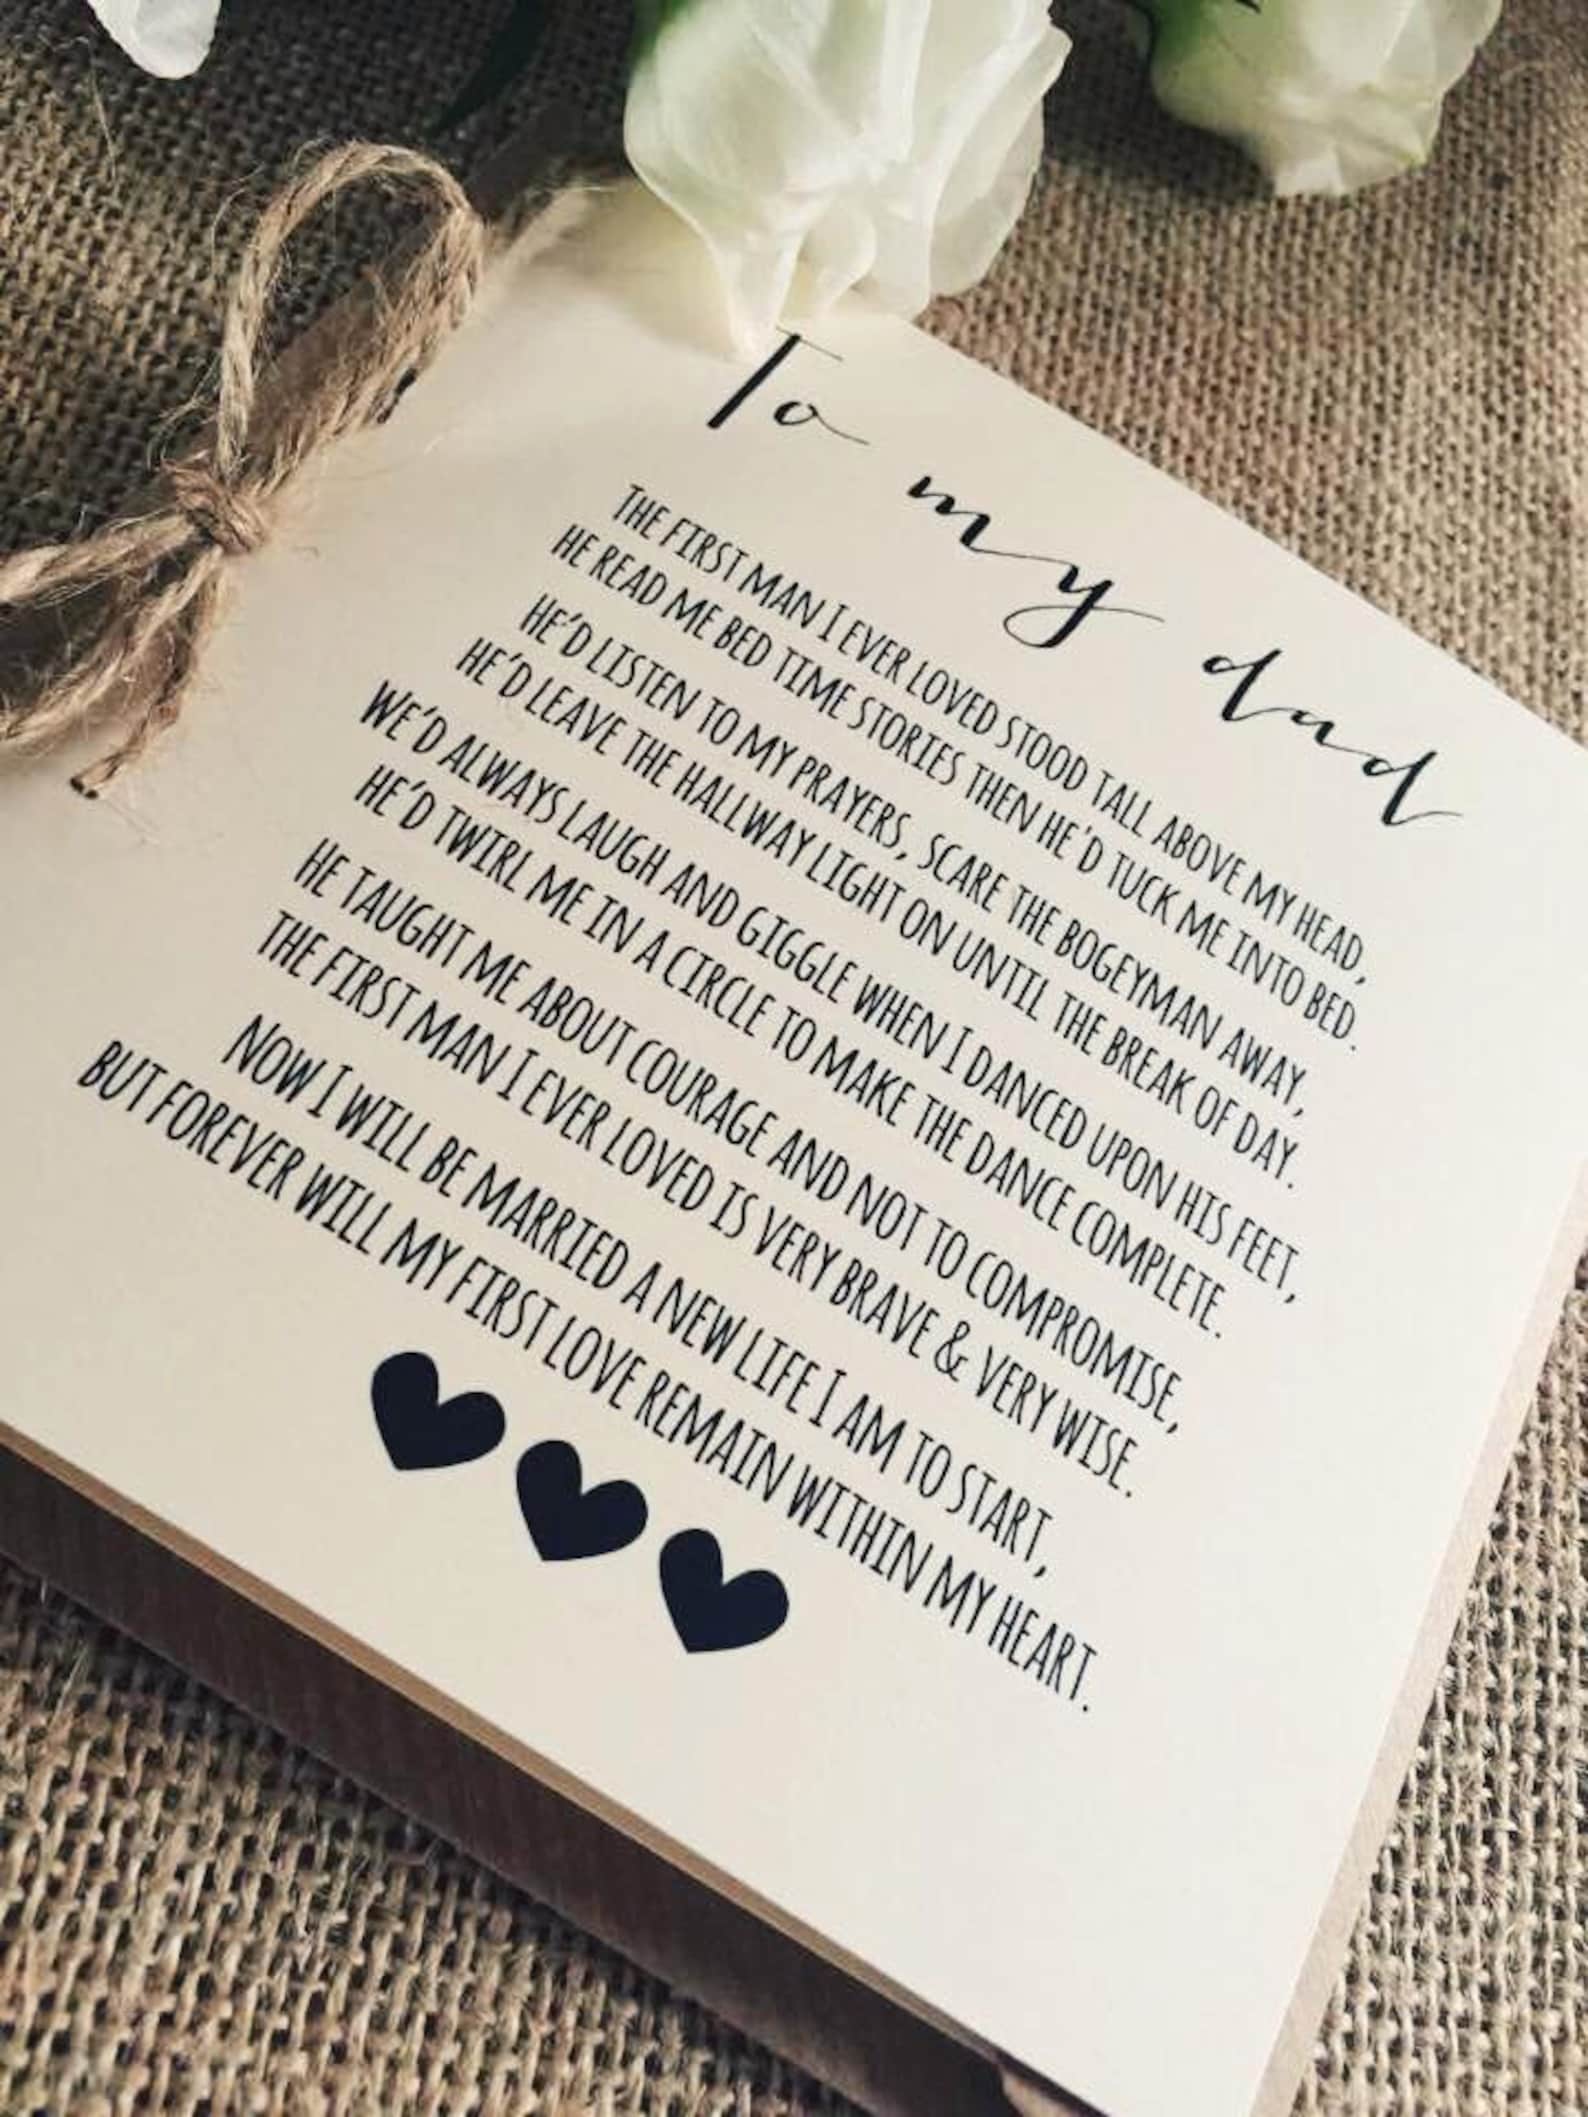 To my dad
THE FIRST MAN I EVER LOVED STOOD TALL ABOVE MY HEAD,
HE READ ME BED TIME STORIES THEN HE'D TUCK ME INTO BED.
HE'D LISTEN TO MY PRAYERS, SCARE THE BOGEYMAN AWAY,
HE'D LEAVE THE HALLWAY LIGHT ON UNTIL THE BREAK OF DAY.
WE'D ALWAYS LAUGH AND GIGGLE WHEN I DANCED UPON HIS FEET,
HE'D TWIRL ME IN A CIRCLE TO MAKE THE DANCE COMPLETE.
HE TAUGHT ME ABOUT COURAGE AND NOT TO COMPROMISE,
THE FIRST MAN I EVER LOVED IS VERY BRAVE & VERY WISE.
NOW I WILL BE MARRIED A NEW LIFE I AM TO START,
BUT FOREVER WILL MY FIRST LOVE REMAIN WITHIN MY HEART.